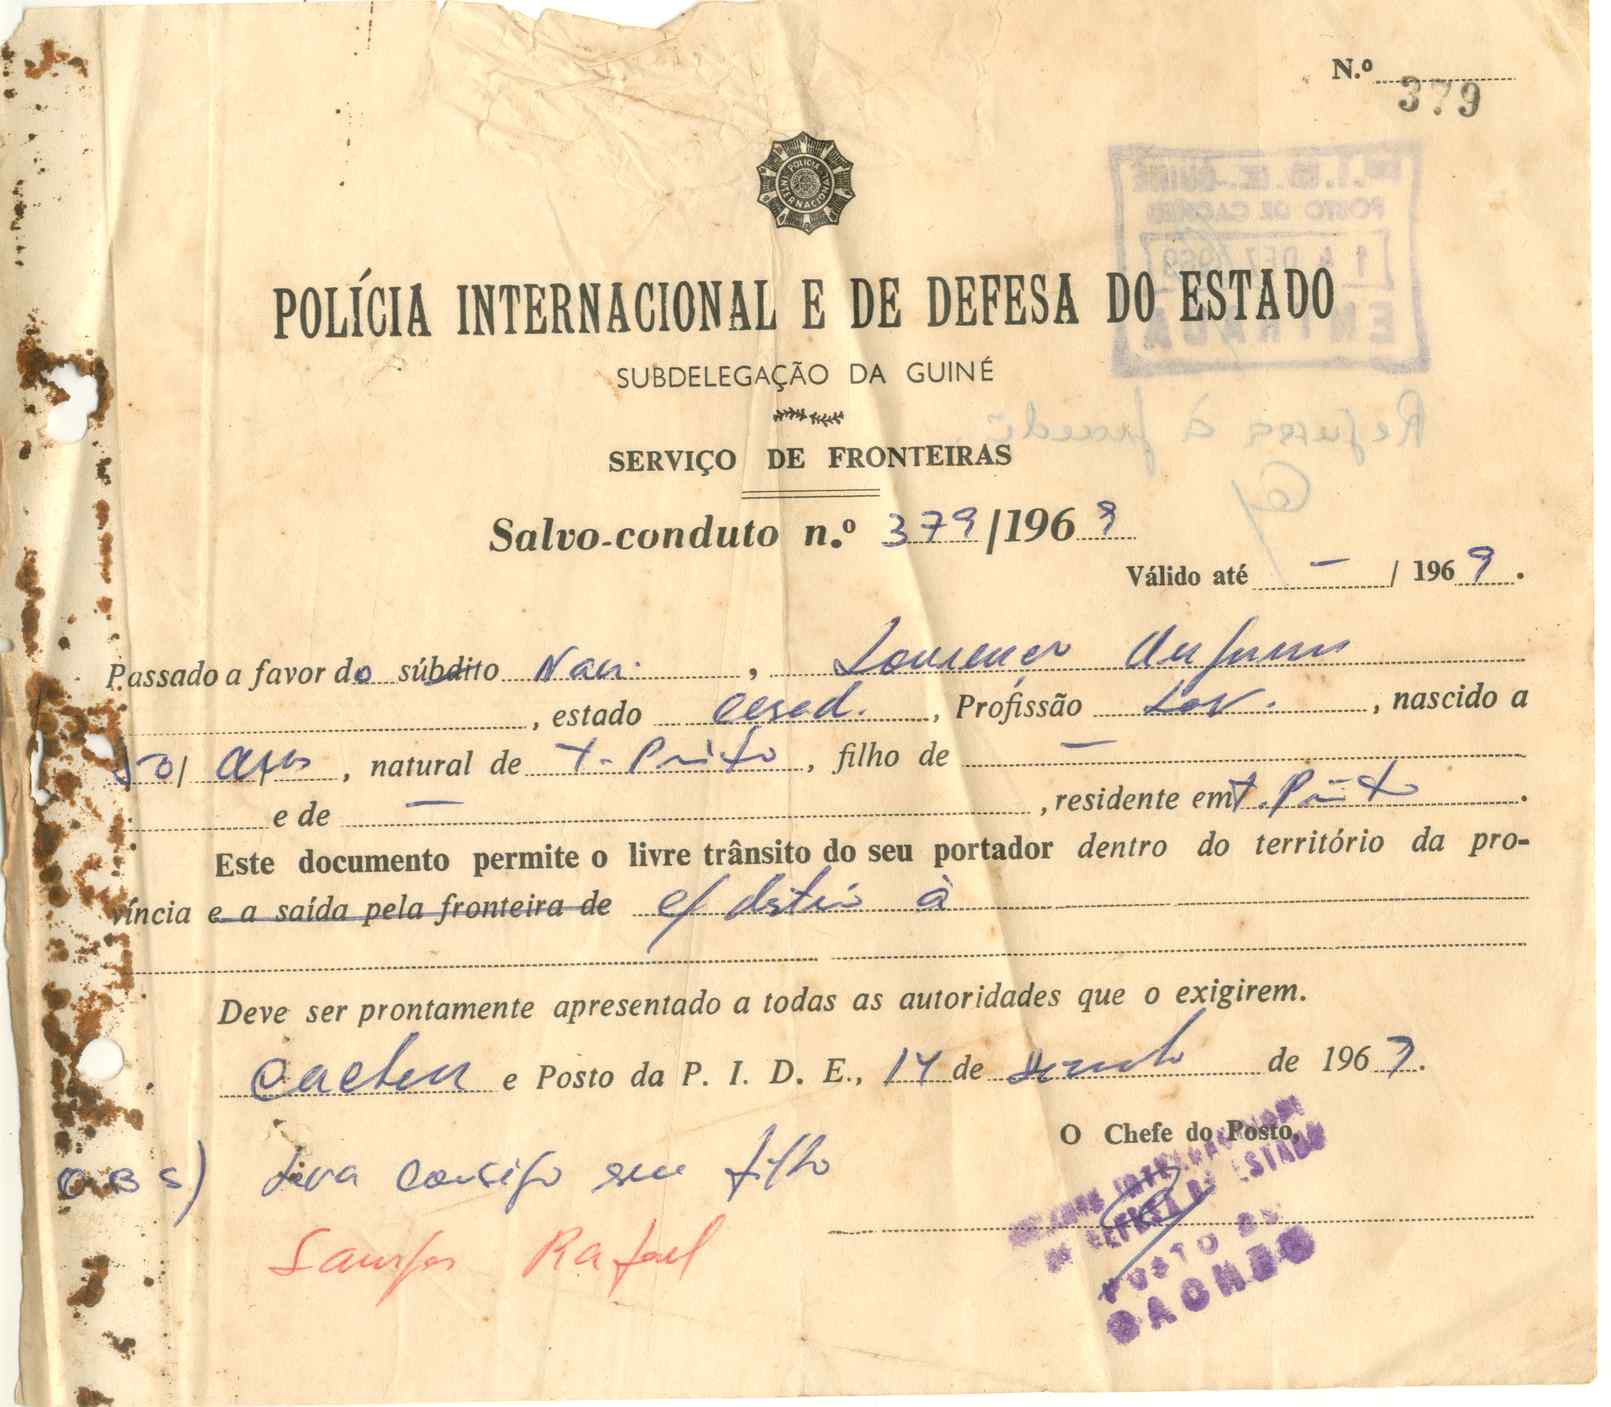 N.º 379
POLÍCIA INTERNACIONAL
POLÍCIA INTERNACIONAL E DE DEFESA DO ESTADO
SUBDELEGAÇÃO DA GUINÉ
SERVIÇO DE FRONTEIRAS
Salvo-conduto n.º 379/1969
Válido até — / 1969.
Passado a favor do súbdito Nac. , Lourenço
, estado casad. , Profissão Lav. , nascido a
50 anos , natural de T. Pinto , filho de —
e de — , residente em T. Pinto .
Este documento permite o livre trânsito do seu portador dentro do território da pro-
víncia e a saída pela fronteira de c/ destino à
Deve ser prontamente apresentado a todas as autoridades que o exigirem.
Cacheu e Posto da P. I. D. E., 14 de de 1969.
O Chefe do Posto,
OBS) Leva consigo seu filho
Rafael
DE DEFESA DO ESTADO
POSTO DE
CACHEU
P.I.D.E.-GUINÉ
POSTO DE CACHEU
14 DEZ 1969
ENTRADA